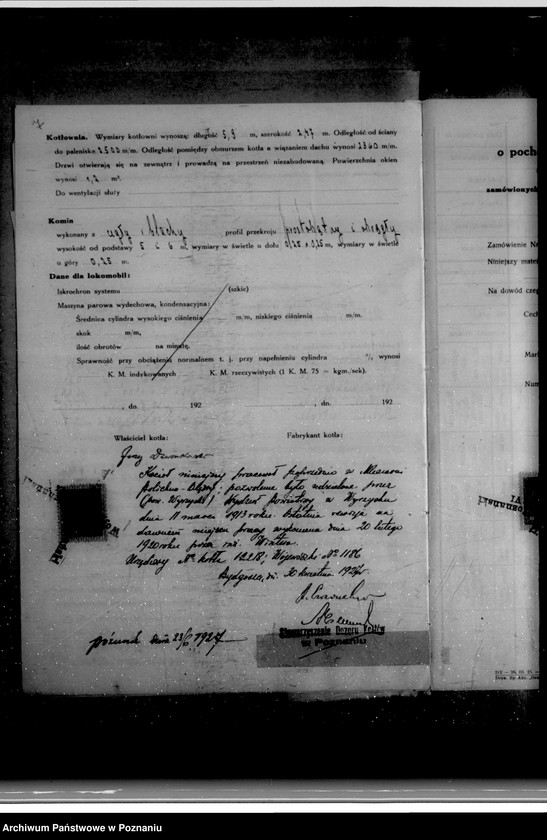 Kotłownia. Wymiary kotłowni wynoszą: długość 5,9 m, szerokość 2,47 m. Odległość od ściany
do paleniska 2500 m/m. Odległość pomiędzy obmurzem kotła a wiązaniem dachu wynosi 2360 m/m.
Drzwi otwierają się na zewnątrz i prowadzą na przestrzeń niezabudowaną. Powierzchnia okien
wynosi 1,2 m².
Do wentylacji służy
Komin
wykonany z cegły i blachy profil przekroju prostokątny i okrągły
wysokość od podstawy 5 i 6 m, wymiary w świetle u dołu 0,25 x 0,25 m, wymiary w świetle
u góry 0,25 m.
Dane dla lokomobil:
Iskrochron systemu (szkic)
Maszyna parowa wydechowa, kondensacyjna:
Średnica cylindra wysokiego ciśnienia m/m, niskiego ciśnienia m/m.
skok m/m,
ilość obrotów na minutę.
Sprawność przy obciążeniu normalnem t. j. przy napełnieniu cylindra %, wynosi
K. M. indykowanych K. M. rzeczywistych (1 K. M. 75 = kgm./sek).
, dn. 192 , dn. 192
Właściciel kotła: Fabrykant kotła:
Kocioł niniejszy pracował poprzednio w
pozwolenie było udzielone przez
(pow. Wyrzysk) Wydział Powiatowy w Wyrzysku
dnia 11 marca 1913 roku. Ostatnia rewizja na
dawniem miejscu pracy wykonana dnia 20 lutego
1920 roku przez inż. Wintra
Urzędowy № kotła 12218, Wojewódzki № 1186
Bydgoszcz, dn. 30 kwietnia 1927 r.
Stowarzyszenie Dozoru Kotłów
w Poznaniu
poznań dnia 23/6 1927
o poch
zamówionych
Zamówienie Na
Niniejszy mate
Na dowód czeg
Cech
Mark
Num
Archiwum Państwowe w Poznaniu